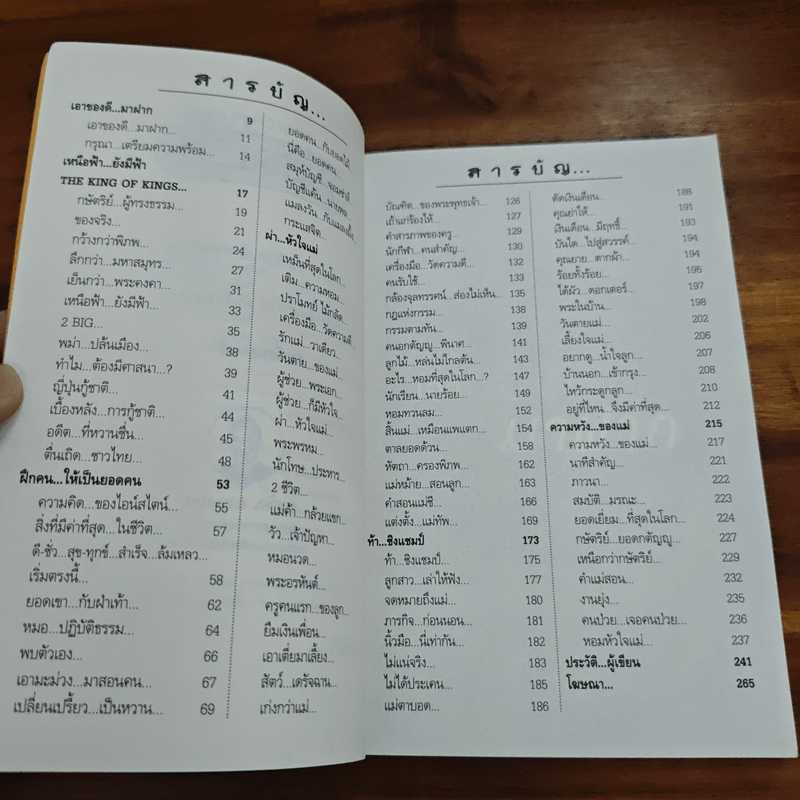 สารบัญ...
เอาของดี...มาฝาก 9
เอาของดี...มาฝาก... 11
กรุณา...เตรียมความพร้อม... 14
เหนือฟ้า...ยังมีฟ้า
THE KING OF KINGS... 17
กษัตริย์...ผู้ทรงธรรม... 19
ของจริง... 21
กว้างกว่าพิภพ... 24
ลึกกว่า...มหาสมุทร... 27
เย็นกว่า...พระคงคา... 31
เหนือฟ้า...ยังมีฟ้า... 33
2 BIG... 35
พม่า...ปล้นเมือง... 38
ทำไม...ต้องมีศาสนา...? 39
ญี่ปุ่นกู้ชาติ... 41
เบื้องหลัง...การกู้ชาติ... 44
อดีต...ที่หวานชื่น... 45
ตื่นเถิด...ชาวไทย... 48
ฝึกคน...ให้เป็นยอดคน 53
ความคิด...ของไอน์สไตน์... 55
สิ่งที่มีค่าที่สุด...ในชีวิต... 57
ดี-ชั่ว...สุข-ทุกข์...สำเร็จ...ล้มเหลว...
เริ่มตรงนี้... 58
ยอดเขา...กับฝ่าเท้า... 62
หมอ...ปฏิบัติธรรม... 64
พบตัวเอง... 66
เอามะม่วง...มาสอนคน... 67
เปลี่ยนเปรี้ยว...เป็นหวาน... 69
ยอดคน...กับยอดไม้...
นี่คือ...ยอดคน...
สมุห์บัญชี...จอมซ่าส์
บัญชีแค้น...นายพล
แมลงวัน...กับแมลงผึ้ง
กระแสจิต...
ผ่า...หัวใจแม่
เหม็นที่สุดในโลก...
เติม...ความหอม...
ปราโมทย์ ไม้กลัด...
เครื่องมือ...วัดความดี...
รักแม่...วาเดียว...
วันตาย...ของแม่...
ผู้ช่วย...พระเอก...
ผู้ช่วย...ก็มีหัวใจ...
ผ่า...หัวใจแม่...
พระพรหม...
นักโทษ...ประหาร...
2 ชีวิต...
แม่ค้า...กล้วยแขก...
วัว...เจ้าปัญหา...
หมอนวด...
พระอรหันต์...
ครูคนแรก...ของลูก...
ยืมเงินเพื่อน...
เอาเตี่ยมาเลี้ยง...
สัตว์...เดรัจฉาน...
เก่งกว่าแม่...
สารบัญ...
บัณฑิต...ของพระพุทธเจ้า... 126
เถ้าแก่ร้องไห้... 127
คำสารภาพของครู... 129
นักกีฬา...คนสำคัญ... 130
เครื่องมือ...วัดความดี... 132
คนรับใช้... 133
กล้องจุลทรรศน์...ส่องไม่เห็น... 135
กฎแห่งกรรม... 138
กรรมตามทัน... 139
คนอกตัญญู...พินาศ... 141
ลูกไม้...หล่นไม่ไกลต้น... 143
อะไร...หอมที่สุดในโลก...? 147
นักเรียน...นายร้อย... 149
หอมทวนลม... 152
สิ้นแม่...เหมือนแพแตก... 154
ตาลยอดด้วน... 158
หัตถา...ครองพิภพ... 162
แม่หม้าย...สอนลูก... 163
คำสอนแม่ชี... 166
แต่งตั้ง...แม่ทัพ... 169
ท้า...ชิงแชมป์ 173
ท้า...ชิงแชมป์... 175
ลูกสาว...เล่าให้ฟัง... 177
จดหมายถึงแม่... 180
ภารกิจ...ก่อนนอน... 181
นิ้วมือ...นี่เท่ากัน... 182
ไม่แน่จริง... 183
ไม่ได้ประเคน... 185
แม่ตาบอด... 186
ตัดเงินเดือน... 188
คุณย่าให้... 191
เงินเดือน...มีฤทธิ์... 193
บันได...ไปสู่สวรรค์... 194
คุณยาย...ตากผ้า... 194
ร้อยทั้งร้อย... 195
ได้ผัว...ดอกเตอร์... 197
พระในบ้าน... 198
วันตายแม่... 202
เลี้ยงใจแม่... 206
อยากดู...น้ำใจลูก... 207
บ้านนอก...เข้ากรุง... 208
ไหว้กระดูกลูก... 210
อยู่ที่ไหน...จึงมีค่าที่สุด... 212
ความหวัง...ของแม่ 215
ความหวัง...ของแม่... 217
นาทีสำคัญ... 221
ภาวนา... 222
สมบัติ...มรณะ... 223
ยอดเยี่ยม...ที่สุดในโลก... 224
กษัตริย์...ยอดกตัญญู... 227
เหนือกว่ากษัตริย์... 229
คำแม่สอน... 232
งานยุ่ง... 235
คนป่วย...เจอคนป่วย... 236
หอมหัวใจแม่... 237
ประวัติ...ผู้เขียน 241
โฆษณา... 265